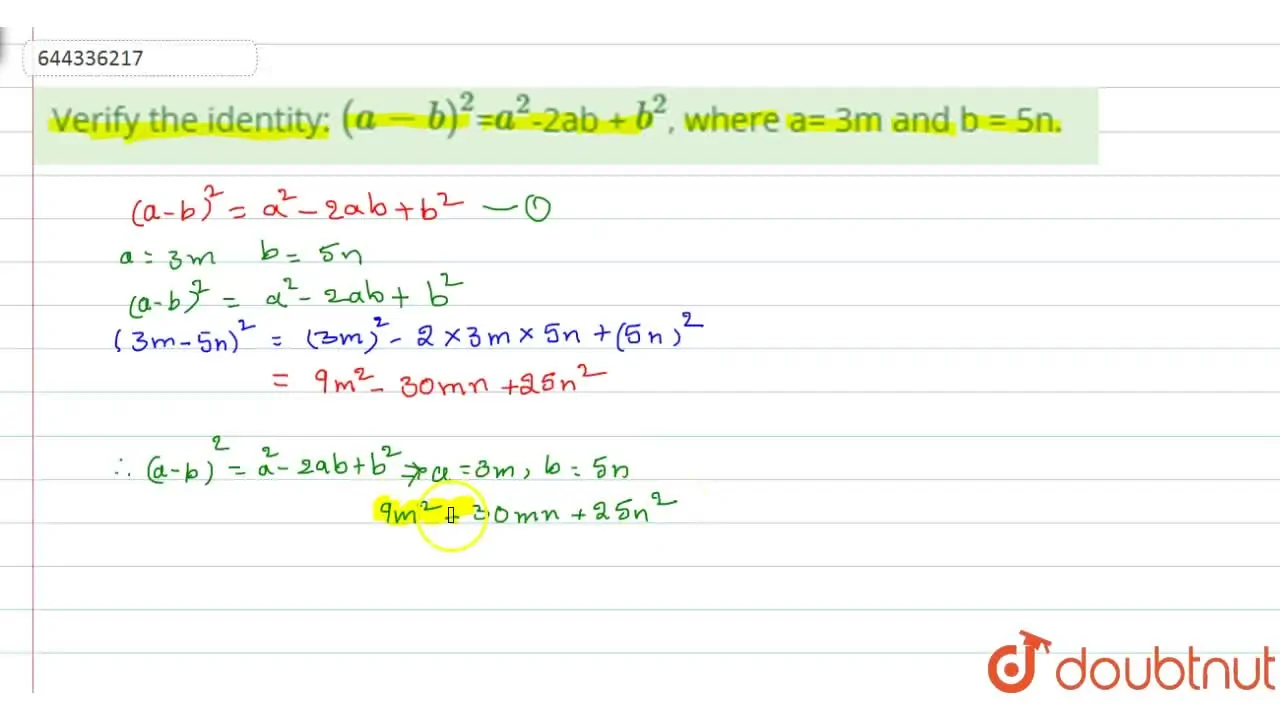 644336217
Verify the identity: (a − b)²=a²-2ab + b², where a= 3m and b = 5n.
(a-b)² = a² - 2ab + b² — ①
a = 3m b = 5n
(a-b)² = a² - 2ab + b²
(3m - 5n)² = (3m)² - 2 × 3m × 5n + (5n)²
= 9m² - 30mn + 25n²
∴ (a-b)² = a² - 2ab + b² → a = 3m, b = 5n
9m² - 30mn + 25n²
doubtnut